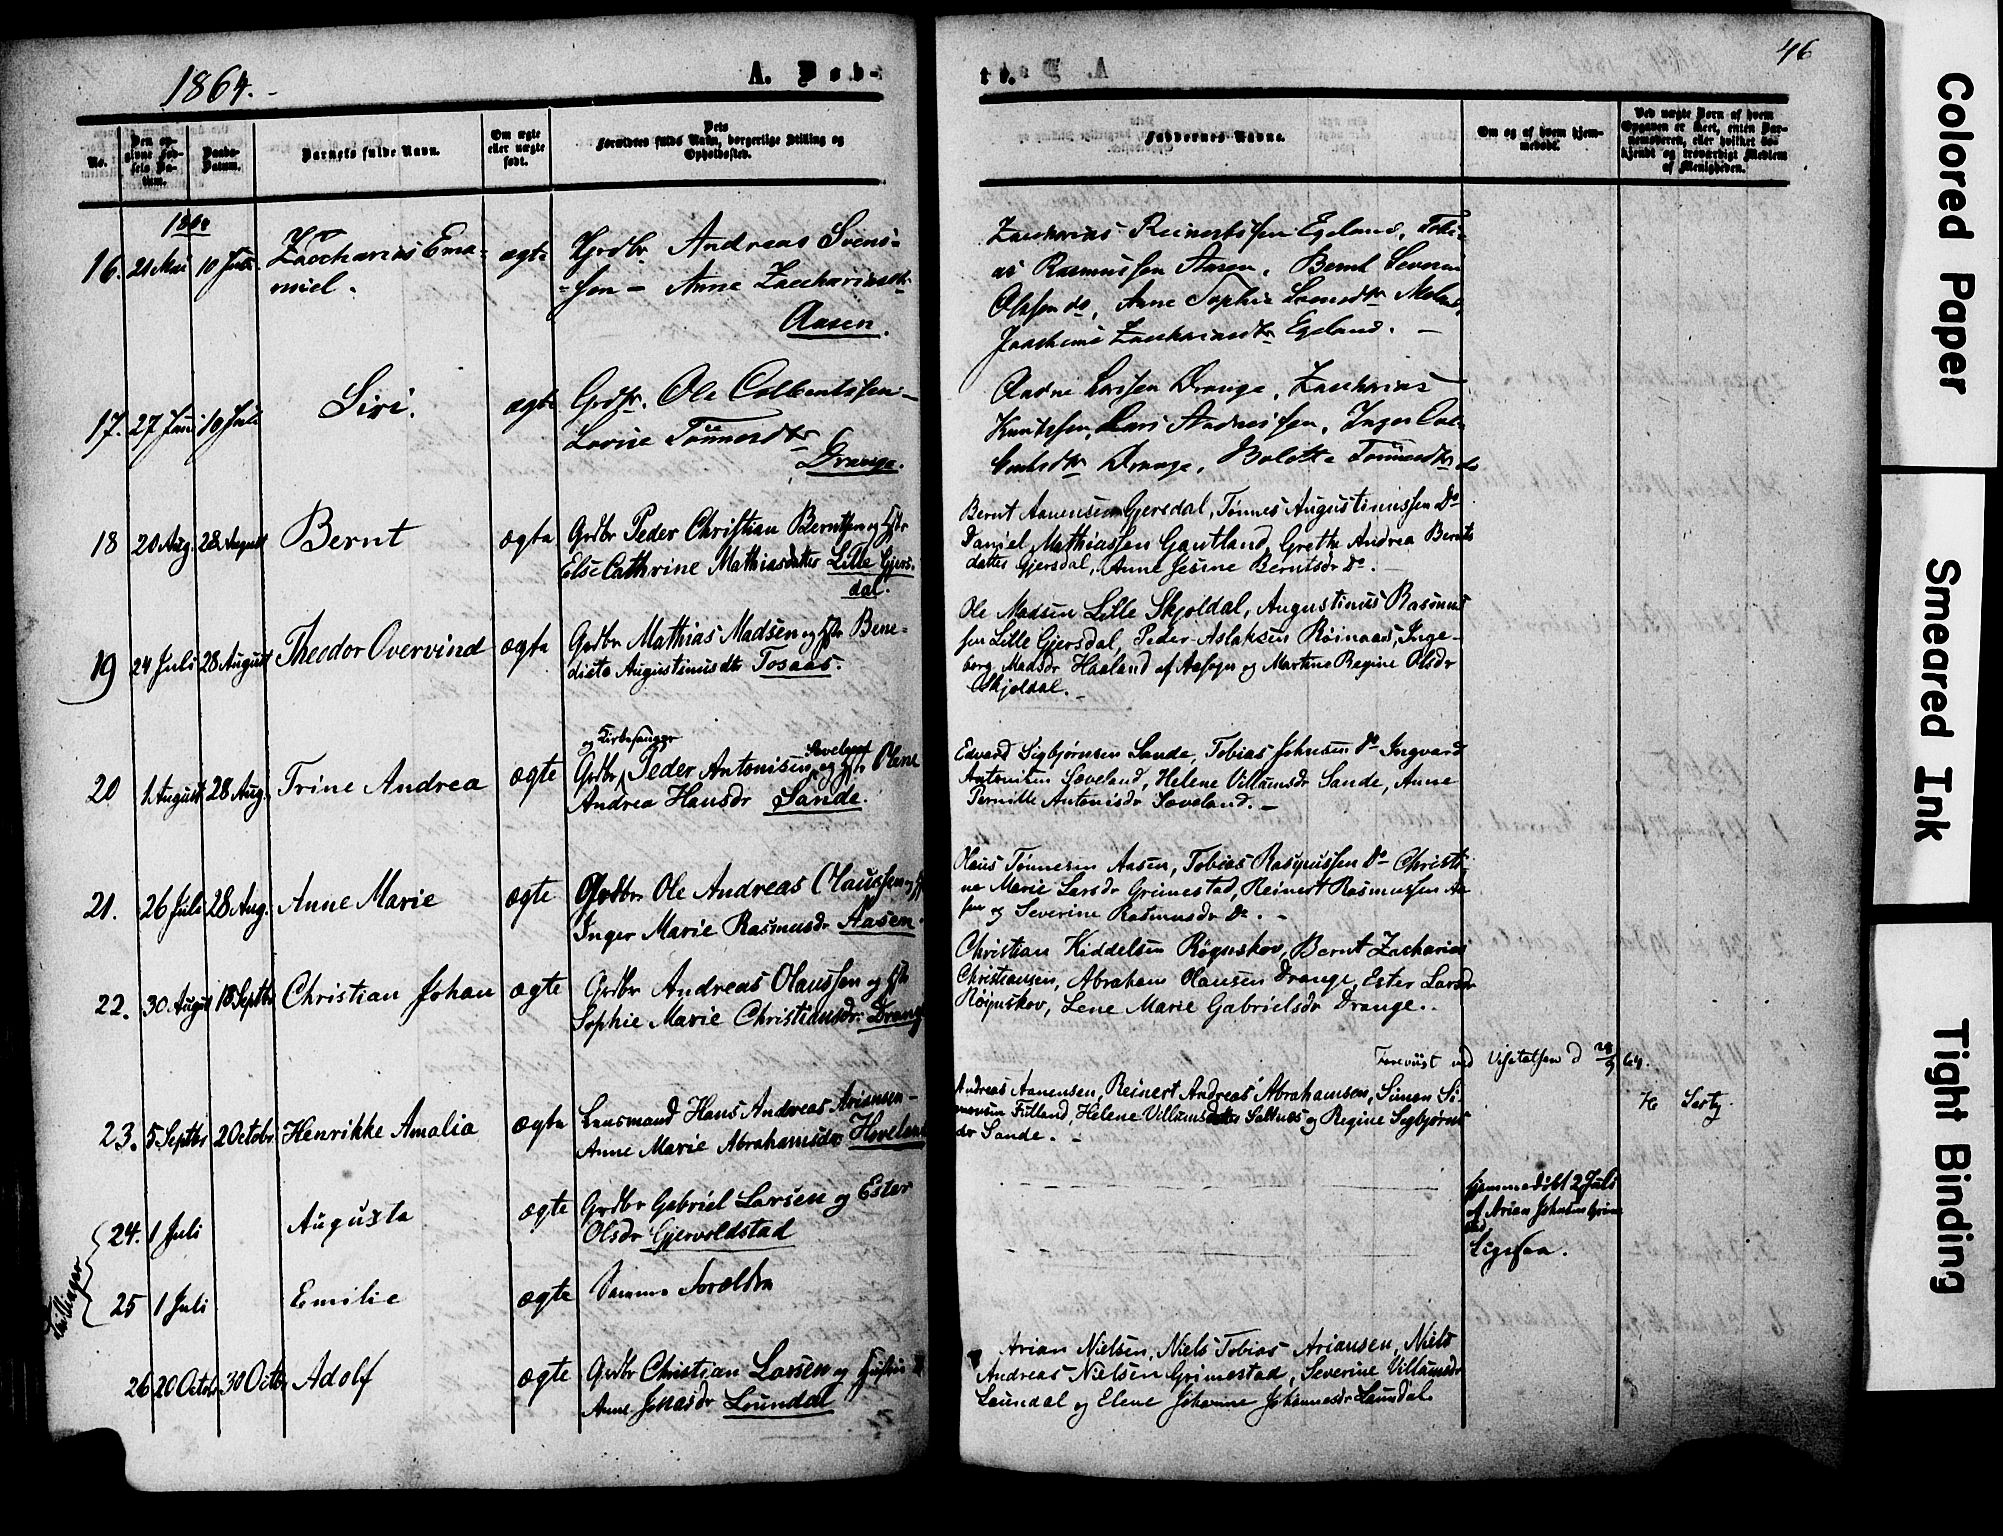 1864.
A. Fød-
te.
46
No.
Den op-
givne Fød-
sels Da-
tum.
Daabs-
Datum.
Barnets fulde Navn.
Om ægte
eller uægte
født.
Dets
Forældres fulde Navn, borgerlige Stilling og
Opholdssted.
Faddernes Navne.
Om og af hvem hjem-
medøbt.
Ved uægte Børn af hvem
Opgaven er skeet, enten Jor-
demoderen, eller hvilket be-
kjendt og troværdigt Medlem
af Menigheden.
1864
16. 21 Mai 10 Juli Zaccharias Ema-
nuel.
ægte Grdbr Andreas Svens-
sen - Anne Zacchariasdtr
Aasen.
Zaccharias Reinertssen Egeland, Tobi-
as Rasmussen Aasen, Bernt Severin
Olsen do, Anne Sophie
Zacchariasdtr Egeland. -
17. 27 Juni 10 Juli Siri. ægte Grdbr. Ole Colbentssen -
Lovise Tönnesdtr
Drange.
Aadne Larssen Drange, Zaccharias
Knutssen, Lars Andreissen, Inger Col-
bentsdtr Drange, Bolette Tönnesdtr do
18 20 Aug. 28 August Bernt ægte Grdbr Peder Christian Berntsen og Hstr
Else Cathrine Mathiasdatter Lille Gjers-
dal.
Bernt Aanensen Gjersdal, Tønnes Augustinussen Do
Daniel Mathiassen Gautland, Grethe Andrea Bernts
datter Gjersdal, Anne Jesine Berntsdr Do. -
19 24 Juli 28 August Theodor Overvind ægte Grdbr Mathias Madsen og Hstr Bene-
dicte Augustinusdtr Tosaas.
Ole Madsen Lille Skjoldal, Augustinus Rasmus
sen Lille Gjersdal, Peder Aslaksen Röinaas, Inge-
borg Madsdr Haaland af Aasogn og Martine Regine Olsdr
Skjoldal. -
20 1 August 28 Aug. Trine Andrea ægte
og Kirkesanger
Grdbr Peder Antonisen Soveland og Hstr Olene
Andrea Hansdr Sande.
Edvard Sigbjørnsen Sande, Tobias Johnsen Do Ingvard
Antonisen Soveland, Helene Villumsdr Sande, Anne
Pernille Antonisdr Soveland. -
21. 26 Juli 28 Aug. Anne Marie ægte Grdbr. Ole Andreas Olaussen og H
Inger Marie Rasmusdr Aasen
Olaus Tønnesen Aasen, Tobias Rasmussen Do Christi-
ne Marie Larsdr Grimestad, Reinert Rasmussen Aa-
sen og Severine Rasmusdr Do. -
22. 30 August 18 Septbr Christian Johan ægte Grdbr Andreas Olaussen og Hstr
Sophie Marie Christiansdr. Drange
Christian Kiddelsen Røgnskov, Bernt Zacharias
Christiansen, Abraham Olausen Drange, Ester Larsdr
Røgnskov, Lene Marie Gabrielsdr Drange.
Foreviist ved Visitatsen d 28/9 64.
23. 5 Septbr 2 Octobr Henrikke Amalia ægte Lensmand Hans Andreas Ariansen -
Anne Marie Abrahamsdr Hoveland
Andreas Aanensen, Reinert Andreas Abrahamsen, Simon Si-
monsen Fidland, Helene Villumsdatter Saltnes og Regine Sigbjørns
dr Sande. -
24. 1 Juli Augusta ægte Grdbr Gabriel Larsen og Ester
Olsdr Gjervoldstad
hjemmedøbt 2 Juli
af Arian Johnsen Grime
stad
Tvillinger
25 1 Juli Emilie ægte Samme Forældre
Ligesaa.
26 20 Octobr 30 Octbr Adolf ægte Grdbr Christian Larsen og Hustru
Anne Jonasdr Loundal
Arian Nielsen, Niels Tobias Ariansen, Niels
Andreas Nielsen Grimestad, Severine Villumsdr
Laundal og Elene Johanne Johannesdr Laundal
Colored Paper
Smeared Ink
Tight Binding